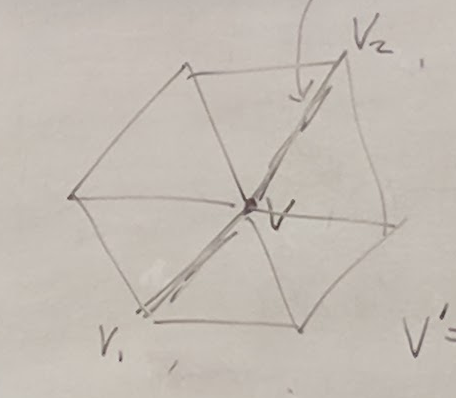 V₂
V
V₁
V' =